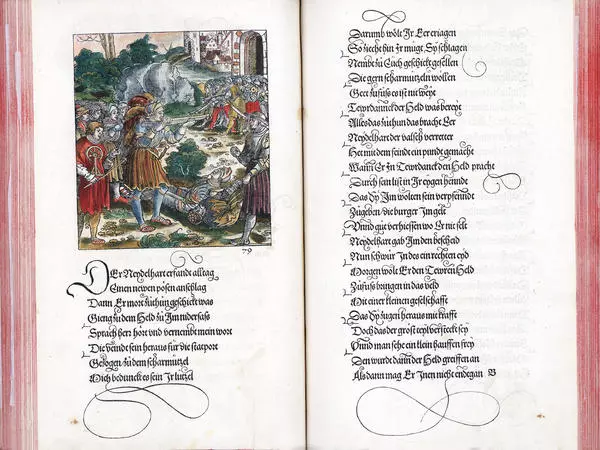 79
Der Neydelhart erfandt alltag
Einen newen posen anschlag
Dann Er mort zuthun geschickt was
Gieng zu dem Held zu Im nidersass
Sprach herr hort vnd vernembt mein wort
Die veindt sein heraus für die statport
Gezogen zu dem scharmützel
Mich bedunckt es sein Ir lützel
Darumb wölt Ir Eer eriagen
So ziecht hin Ir mügt Sy schlagen
Nembt zu Euch geschickt gesellen
Die gern scharmutzeln wollen
Geet zufuss es ist nit weyt
Tewrdannck der Held was bereyt
Alles das zuthun das bracht Eer
Neydelhart der valsch verretter
Het mit dem feindt ein pundt gemacht
Wann Er In Tewrdanck den Held pracht
Durch sein list in Ir eygen henndt
Das Sy Im wolten sein verpfenndt
Zugeben die burger Im gelt
Vnnd gut verhiessen wo Er nit felt
Neydelhart gab Im den bescheid
Nun schwur In des ein rechten eyd
Morgen wölt Er den Tewren Held
Zufuss bringen in das veld
Mit einer kleinen geselschafft
Das Sy zugen heraus mit krafft
Doch das der gröst teyl versteckt sey
Vnnd man sehe ein klein hauffen frey
Den wurdt dann der Held greiffen an
Als dann mag Er Inen nicht endtgan B